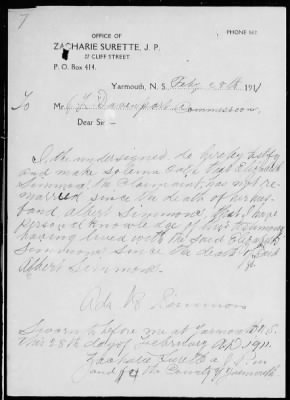 7
OFFICE OF
PHONE 162
ZACHARIE SURETTE, J. P.
27 CLIFF STREET.
P. O. Box 414.
Yarmouth, N. S. Feby 28th 1911
To Mr. J L Davenport Commissioner,
Dear Sir—
I the undersigned do hereby testify
and make solemn oath that Elizabeth
Simmons, the claimant, has not re-
married since the death of her hus-
band, Albert Simmons, that I have
personal knowledge of this testimony
having lived with the said Elizabeth
Simmons since the death of said
Albert Simmons.
Ada B Simmons
Sworn before me at Yarmouth N.S.
this 28th day of February A.D. 1911.
Zacharie Surette a J. P. in
and for the County of Yarmouth